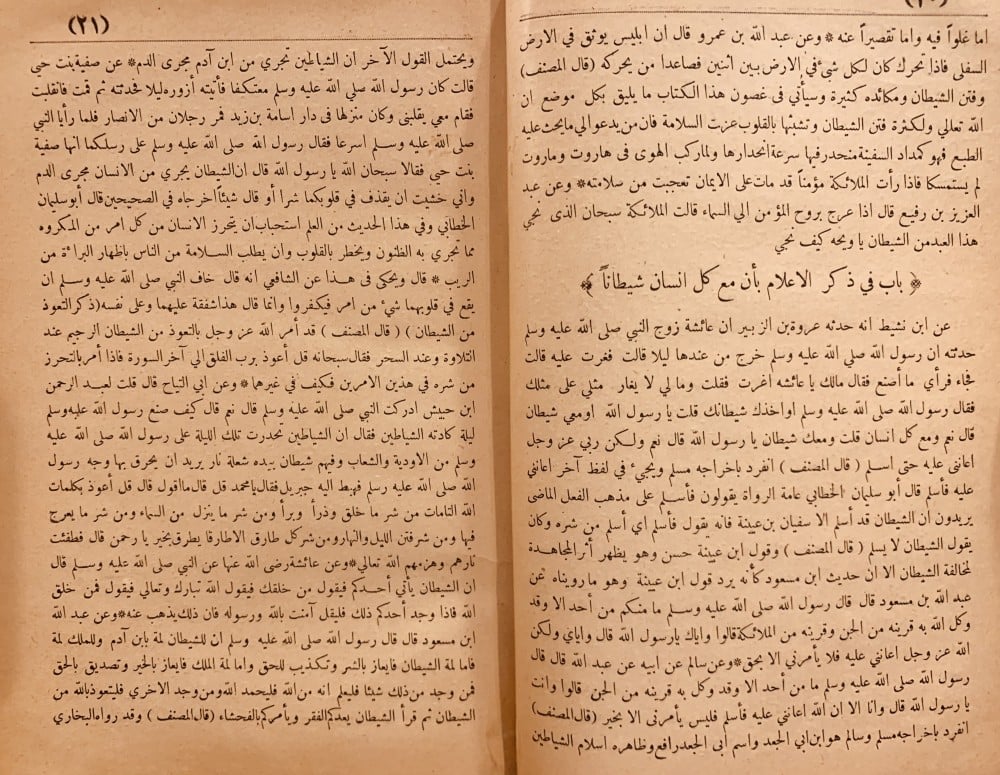 (٢٠)
اما غلواً فيه واما تقصيراً عنه * وعن عبد الله بن عمرو قال ان ابليس يوثق في الارض
السفلى فاذا تحرك كان لكل شئ في الارض بين اثنين فصاعدا من بحركه (قال المصنف)
وفتن الشيطان ومكائده كثيرة وسيأتي في غصون هذا الكتاب ما يليق بكل موضع ان
الله تعالي ولكثرة فتن الشيطان وتشبثها بالقلوب عزت السلامة فان من يدعو الي ما يحث عليه
الطبع فهو كمداد السفينة منحدر فيها سرعة انحدارها ولما ركب الهوى فى هاروت وماروت
لم يستمسكا فاذا رأت الملائكة مؤمناً قد مات على الايمان تعجبت من سلامته * وعن عبد
العزيز بن رفيع قال اذا عرج بروح المؤمن الي السماء قالت الملائكة سبحان الذى نجي
هذا العبد من الشيطان يا ويحه كيف نجي
﴿ باب في ذكر الاعلام بأن مع كل انسان شيطاناً ﴾
عن ابن نشيط انه حدثه عروة بن الزبير ان عائشة زوج النبي صلى الله عليه وسلم
حدثته ان رسول الله صلى الله عليه وسلم خرج من عندها ليلا قالت فغرت عليه قالت
فجاء فرأي ما أصنع فقال مالك يا عائشه أغرت فقلت ومالي لا يغار مثلي على مثلك
فقال رسول الله صلى الله عليه وسلم او اخذك شيطانك قلت يا رسول الله اومعي شيطان
قال نعم ومع كل انسان قلت ومعك شيطان يا رسول الله قال نعم ولكن ربي عز وجل
اعانني عليه حتى اسلم (قال المصنف) انفرد باخراجه مسلم ويجئ في لفظ آخر اعانني
عليه فأسلم قال أبو سليمان الخطابي عامة الرواة يقولون فأسلم على مذهب الفعل الماضى
يريدون ان الشيطان قد أسلم الا سفيان بن عيينة فانه يقول فأسلم أي أسلم من شره وكان
يقول الشيطان لا يسلم (قال المصنف) وقول ابن عيينة حسن وهو يظهر أثر المجاهدة
لمخالفة الشيطان الا ان حديث ابن مسعود كأنه يرد قول ابن عيينة وهو ما رويناه عن
عبد الله بن مسعود قال قال رسول الله صلى الله عليه وسلم ما منكم من أحد الا وقد
وكل الله به قرينه من الجن وقرينه من الملائكة قالوا واياك يا رسول الله قال واياي ولكن
الله عز وجل اعانني عليه فلا يأمرني الا بحق * وعن سالم عن ابيه عن عبد الله قال قال
رسول الله صلى الله عليه وسلم ما من أحد الا وقد وكل به قرينه من الجن قالوا وانت
يا رسول الله قال وانا الا ان الله اعانني عليه فأسلم فليس يأمرنى الا بخير (قال المصنف)
انفرد باخراجه مسلم وسالم هو ابن ابي الجعد واسم أبى الجعد رافع وظاهره اسلام الشياطين
(٢١)
ويحتمل القول الآخر ان الشياطين تجري من ابن آدم مجرى الدم * عن صفية بنت حيى
قالت كان رسول الله صلى الله عليه وسلم معتكفا فأتيته أزوره ليلا فحدثته ثم قمت فانقلبت
فقام معي يقلبنى وكان منزلها فى دار أسامة بن زيد فمر رجلان من الانصار فلما رأيا النبي
صلى الله عليه وسلم اسرعا فقال رسول الله صلى الله عليه وسلم على رسلكما انها صفية
بنت حيى فقالا سبحان الله يا رسول الله قال ان الشيطان يجري من الانسان مجرى الدم
واني خشيت ان يقذف في قلوبكما شرا أو قال شيئاً اخرجاه في الصحيحين قال أبو سليمان
الخطابي وفي هذا الحديث من العلم استحباب ان يتحرز الانسان من كل امر من المكروه
مما تجري به الظنون ويخطر بالقلوب وان يطلب السلامة من الناس باظهار البراءة من
الريب * قال ويحكى فى هذا عن الشافعي انه قال خاف النبي صلى الله عليه وسلم ان
يقع في قلوبهما شئ من امر فيكفروا وانما قال هذا شفقة عليهما وعلى نفسه (ذكر التعوذ
من الشيطان) (قال المصنف) قد أمر الله عز وجل بالتعوذ من الشيطان الرجيم عند
التلاوة وعند السحر فقال سبحانه قل أعوذ برب الفلق الي آخر السورة فاذا أمر بالتحرز
من شره في هذين الامرين فكيف في غيرهما * وعن ابي التياح قال قلت لعبد الرحمن
ابن حبيش ادركت النبي صلى الله عليه وسلم قال نعم قال كيف صنع رسول الله عليه وسلم
ليلة كادته الشياطين فقال ان الشياطين تحدرت تلك الليلة على رسول الله صلى الله عليه
وسلم من الاودية والشعاب وفيهم شيطان بيده شعلة نار يريد ان يحرق بها وجه رسول
الله صلى الله عليه رسلم فهبط اليه جبريل فقال يا محمد قل قال ما اقول قال قل أعوذ بكلمات
الله التامات من شر ما خلق وذرأ وبرأ ومن شر ما ينزل من السماء ومن شر ما يعرج
فيها ومن شر فتن الليل والنهار ومن شر كل طارق الا طارقا يطرق بخير يا رحمن قال فطفئت
نارهم وهزمهم الله تعالي * وعن عائشة رضى الله عنها عن النبي صلى الله عليه وسلم قال
ان الشيطان يأتي أحدكم فيقول من خلقك فيقول الله تبارك وتعالي فيقول فمن خلق
الله فاذا وجد أحدكم ذلك فليقل آمنت بالله ورسوله فان ذلك يذهب عنه * وعن عبد الله
ابن مسعود قال قال رسول الله صلى الله عليه وسلم ان للشيطان لمة بابن آدم وللملك لمة
فاما لمة الشيطان فايعاز بالشر وتكذيب للحق واما لمة الملك فايعاز بالخير وتصديق بالحق
فمن وجد من ذلك شيئا فليعلم انه من الله فليحمد الله ومن وجد الاخري فليتعوذ بالله من
الشيطان ثم قرأ الشيطان يعدكم الفقر ويأمركم بالفحشاء (قال المصنف) وقد رواه البخاري